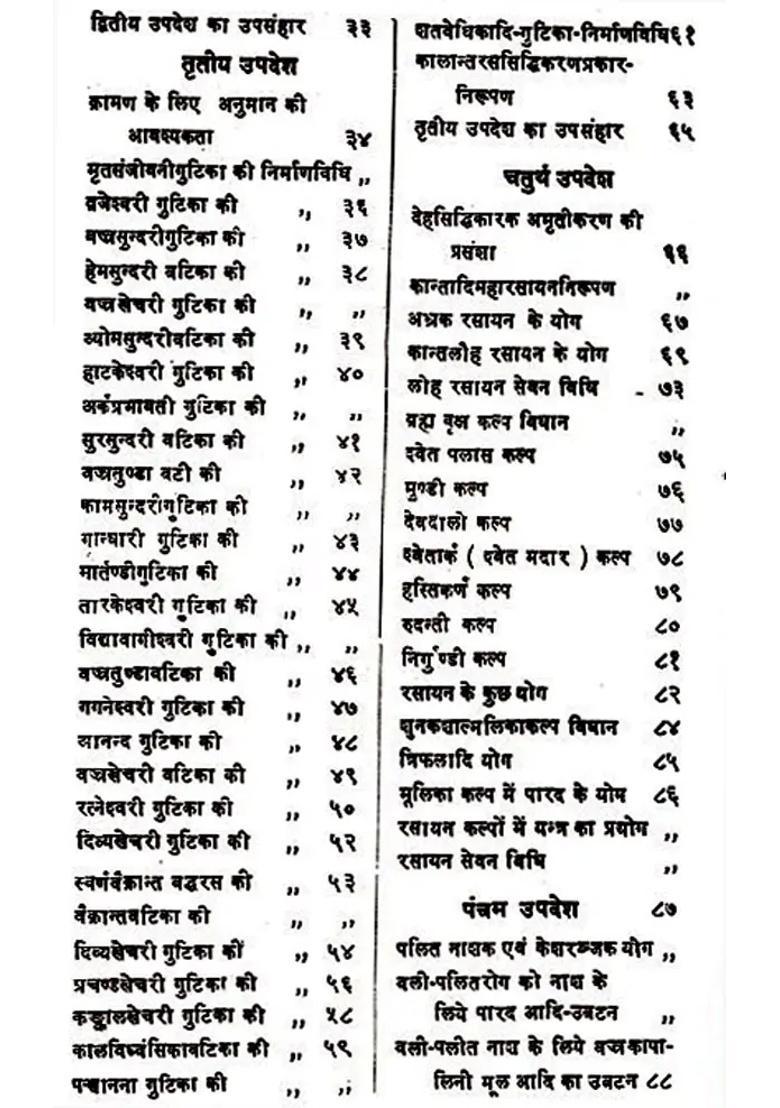 द्वितीय उपदेश का उपसंहार ३३
तृतीय उपदेश
क्रामण के लिए अनुमान की
आवश्यकता ३४
मृतसंजीवनीगुटिका की निर्माणविधि ,,
व्रजेश्वरी गुटिका की ,, ३६
वज्रसुन्दरीगुटिका की ,, ३७
हेमसुन्दरी वटिका की ,, ३८
वज्रखेचरी गुटिका की ,, ,,
व्योमसुन्दरीवटिका की ,, ३९
हाटकेश्वरी गुटिका की ,, ४०
अर्कप्रभावती गुटिका की ,, ,,
सुरसुन्दरी वटिका की ,, ४१
वज्रतुण्डा वटी की ,, ४२
कामसुन्दरीगुटिका की ,, ,,
गान्धारी गुटिका की ,, ४३
मार्तण्डीगुटिका की ,, ४४
तारकेश्वरी गुटिका की ,, ४५
विद्यावागीश्वरी गुटिका की ,, ,,
वज्रतुण्डावटिका की ,, ४६
गगनेश्वरी गुटिका की ,, ४७
आनन्द गुटिका की ,, ४८
वज्रखेचरी वटिका की ,, ४९
रत्नेश्वरी गुटिका की ,, ५०
दिव्यखेचरी गुटिका की ,, ५२
स्वर्णवैक्रान्त बद्धरस की ,, ५३
वैक्रान्तवटिका की ,, ,,
दिव्यखेचरी गुटिका कीं ,, ५४
प्रचण्डखेचरी गुटिका की ,, ५६
कङ्कालखेचरी गुटिका की ,, ५८
कालविध्वंसिकावटिका की ,, ५९
पञ्चानना गुटिका की ,, ,,
शतवेधिकादि-गुटिका-निर्माणविधि६१
कालान्तरससिद्धिकरणप्रकार-
निरूपण ६३
तृतीय उपदेश का उपसंहार ६५
चतुर्थ उपदेश
देहसिद्धिकारक अमृतीकरण की
प्रसंशा ६६
कान्तादिमहारसायननिरूपण ,,
अभ्रक रसायन के योग ६७
कान्तलोह रसायन के योग ६९
लोह रसायन सेवन विधि - ७३
ब्रह्म वृक्ष कल्प विधान ,,
श्वेत पलास कल्प ७५
मुण्डी कल्प ७६
देवदाली कल्प ७७
श्वेतार्क ( श्वेत मदार ) कल्प ७८
हस्तिकर्ण कल्प ७९
रुदन्ती कल्प ८०
निर्गुण्डी कल्प ८१
रसायन के कुछ योग ८२
शुनकशाल्मलिकाकल्प विधान ८४
त्रिफलादि योग ८५
मूलिका कल्प में पारद के योग ८६
रसायन कल्पों में यन्त्र का प्रयोग ,,
रसायन सेवन विधि ,,
पंचम उपदेश ८७
पलित नाशक एवं केशरञ्जक योग ,,
वली-पलितरोग को नाश के
लिये पारद आदि-उबटन ,,
वली-पलीत नाश के लिये वज्रकापा-
लिनी मूल आदि का उबटन ८८